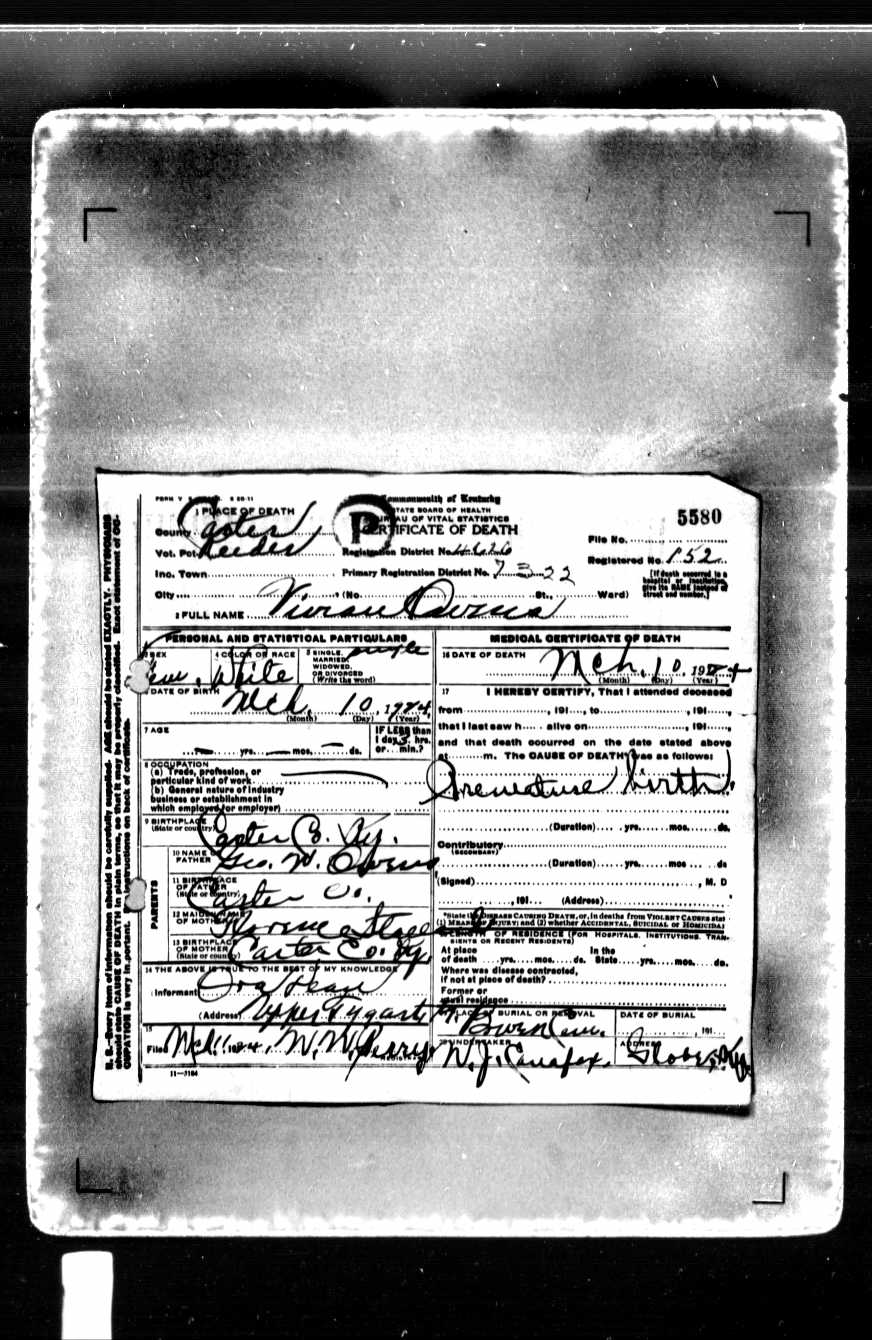 Commonwealth of Kentucky
STATE BOARD OF HEALTH
BUREAU OF VITAL STATISTICS
CERTIFICATE OF DEATH
5580
1 PLACE OF DEATH
County Carter
Vot. Pct. Reeder
Registration District No.
File No.
Inc. Town
Primary Registration District No. 7322
Registered No. 152
[If death occurred in a hospital or institution, give its NAME instead of street and number.]
City (No. St., Ward)
2 FULL NAME Vivian Owens
PERSONAL AND STATISTICAL PARTICULARS
SEX Fem.
4 COLOR OR RACE White
5 SINGLE, MARRIED, WIDOWED, OR DIVORCED (Write the word) single
DATE OF BIRTH Mch. 10, 1924
(Month) (Day) (Year)
7 AGE
yrs. mos. ds.
IF LESS than 1 day, hrs. or min.?
8 OCCUPATION
(a) Trade, profession, or particular kind of work
(b) General nature of industry business or establishment in which employed (or employer)
9 BIRTHPLACE
(State or country) Carter Co. Ky.
PARENTS
10 NAME OF FATHER Geo. W. Owens
11 BIRTHPLACE OF FATHER (State or country) Carter Co.
12 MAIDEN NAME OF MOTHER
13 BIRTHPLACE OF MOTHER (State or country) Carter Co. Ky.
14 THE ABOVE IS TRUE TO THE BEST OF MY KNOWLEDGE
Informant Ora
(Address) Upper Tygart, Ky.
15
Filed Mch. W. W. Perry
REGISTRAR
11—3184
MEDICAL CERTIFICATE OF DEATH
16 DATE OF DEATH Mch. 10 1924
(Month) (Day) (Year)
17 I HEREBY CERTIFY, That I attended deceased
from , 191 , to , 191 ,
that I last saw h alive on , 191 ,
and that death occurred on the date stated above
at m. The CAUSE OF DEATH was as follows:
Premature birth.
(Duration) yrs. mos. ds.
Contributory
(SECONDARY)
(Duration) yrs. mos. ds
(Signed) , M. D
, 191 . (Address)
*State the DISEASE CAUSING DEATH, or, in deaths from VIOLENT CAUSES state (1) MEANS OF INJURY; and (2) whether ACCIDENTAL, SUICIDAL or HOMICIDAL
LENGTH OF RESIDENCE (FOR HOSPITALS, INSTITUTIONS, TRANSIENTS OR RECENT RESIDENTS)
At place of death yrs. mos. ds. In the State yrs. mos. ds.
Where was disease contracted, if not at place of death?
Former or usual residence
PLACE OF BURIAL OR REMOVAL Owen Cem.
DATE OF BURIAL , 191
UNDERTAKER W. J.
ADDRESS
N. B.—Every item of information should be carefully supplied. AGE should be stated EXACTLY. PHYSICIANS
should state CAUSE OF DEATH in plain terms, so that it may be properly classified. Exact statement of OC-
CUPATION is very important. See instructions on back of certificate.